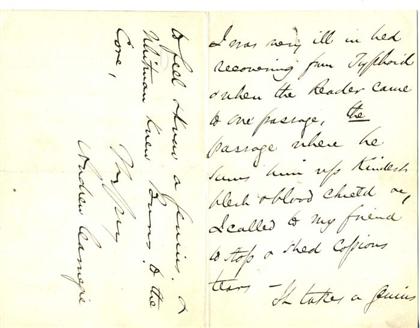 I was very ill in bed
recovering from Typhoid
& when the Reader came
to one passage, the
passage where he
sums him up Kindest
flesh & blood chield &c,
I called to my friend
to stop & shed Copious
tears -
It takes a genius
to feel & know a genius. &
Whitman Knew Burns to the
Core,
Andrew Carnegie